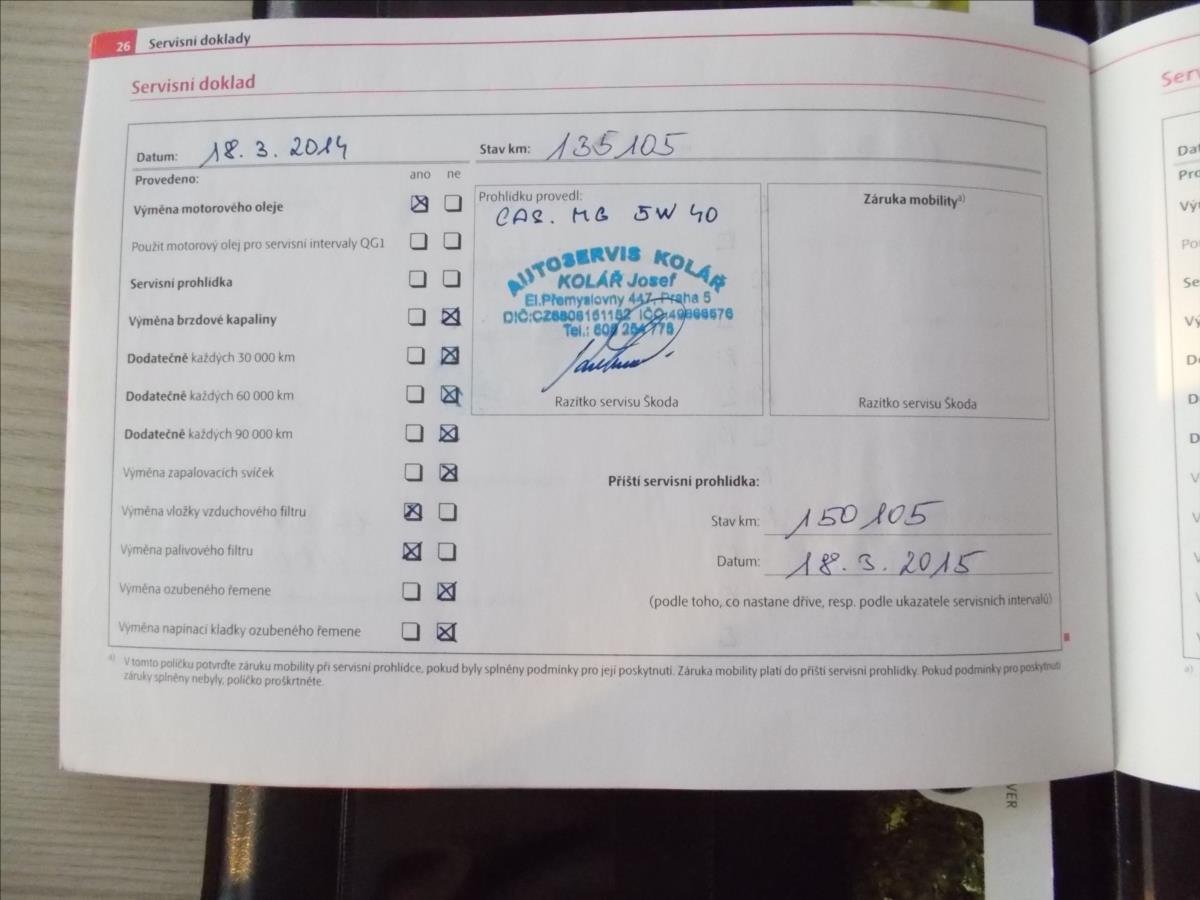 26 Servisní doklady
Servisní doklad
Datum: 18. 3. 2014
Stav km: 135105
Provedeno:
ano ne
Výměna motorového oleje
Použit motorový olej pro servisní intervaly QG1
Servisní prohlídka
Výměna brzdové kapaliny
Dodatečně každých 30 000 km
Dodatečně každých 60 000 km
Dodatečně každých 90 000 km
Výměna zapalovacích svíček
Výměna vložky vzduchového filtru
Výměna palivového filtru
Výměna ozubeného řemene
Výměna napínací kladky ozubeného řemene
Prohlídku provedl:
CAS. MG 5W 40
AUTOSERVIS KOLÁŘ
KOLÁŘ Josef
El.Přemyslovny 447, Praha 5
Tel.:
Razítko servisu Škoda
Záruka mobility a)
Razítko servisu Škoda
Příští servisní prohlídka:
Stav km: 150105
Datum: 18. 3. 2015
(podle toho, co nastane dříve, resp. podle ukazatele servisních intervalů)
a) V tomto políčku potvrďte záruku mobility při servisní prohlídce, pokud byly splněny podmínky pro její poskytnutí. Záruka mobility platí do příští servisní prohlídky. Pokud podmínky pro poskytnutí
záruky splněny nebyly, políčko proškrtněte.
Serv
Dat
Pro
Vý
Po
Se
Vý
Do
D
D
V
V
V
V
V
a)
VER